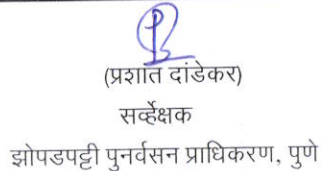 (प्रशांत दांडेकर)
सर्व्हेक्षक
झोपडपट्टी पुनर्वसन प्राधिकरण, पुणे